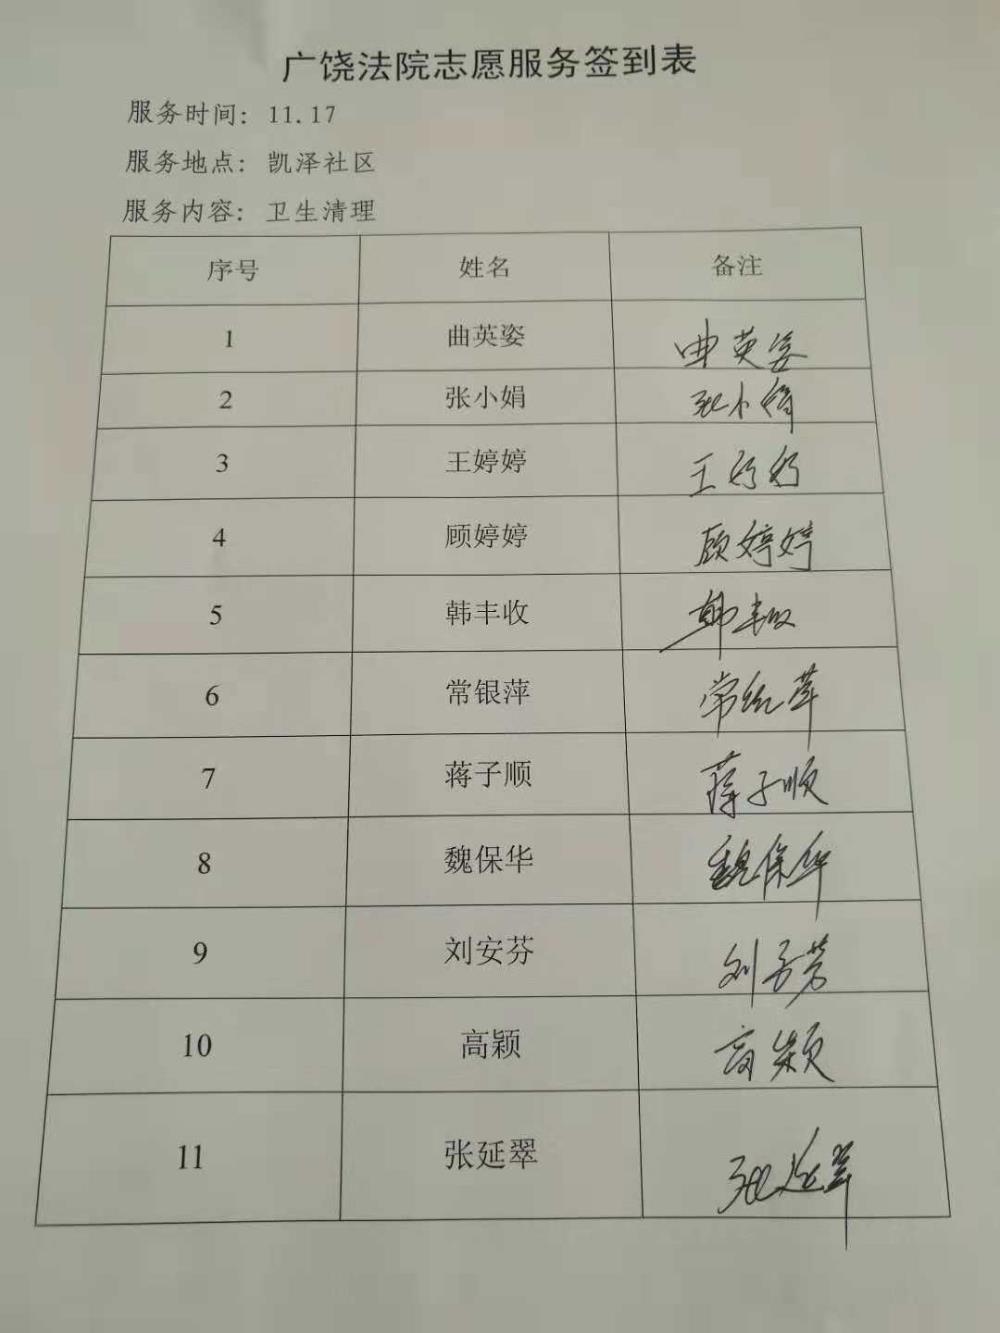 广饶法院志愿服务签到表
服务时间：11.17
服务地点：凯泽社区
服务内容：卫生清理
序号 姓名 备注
1 曲英姿 曲英姿
2 张小娟 张小娟
3 王婷婷 王婷婷
4 顾婷婷 顾婷婷
5 韩丰收 韩丰收
6 常银萍 常银萍
7 蒋子顺 蒋子顺
8 魏保华 魏保华
9 刘安芬 刘安芬
10 高颖 高颖
11 张延翠 张延翠